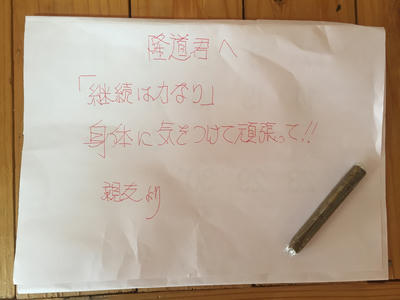 隆道君へ
「継続は力なり」
身体に気をつけて頑張って!!
親友より